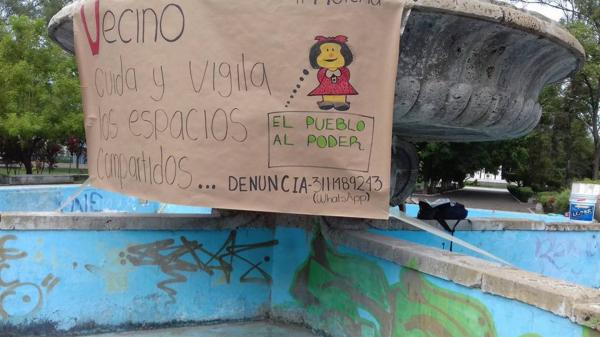 Vecino
cuida y vigila
los espacios
compartidos...
EL PUEBLO
AL PODER
DENUNCIA-3111489243
(WhatsApp)